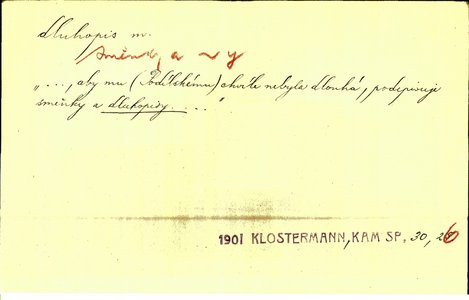 dluhopis m.
směnky a ~y
„..., aby mu (Podětskému) chvíle nebyla dlouhá, podepisuje
směnky a dluhopisy....“
1901 KLOSTERMANN, KAM SP. 30, 26